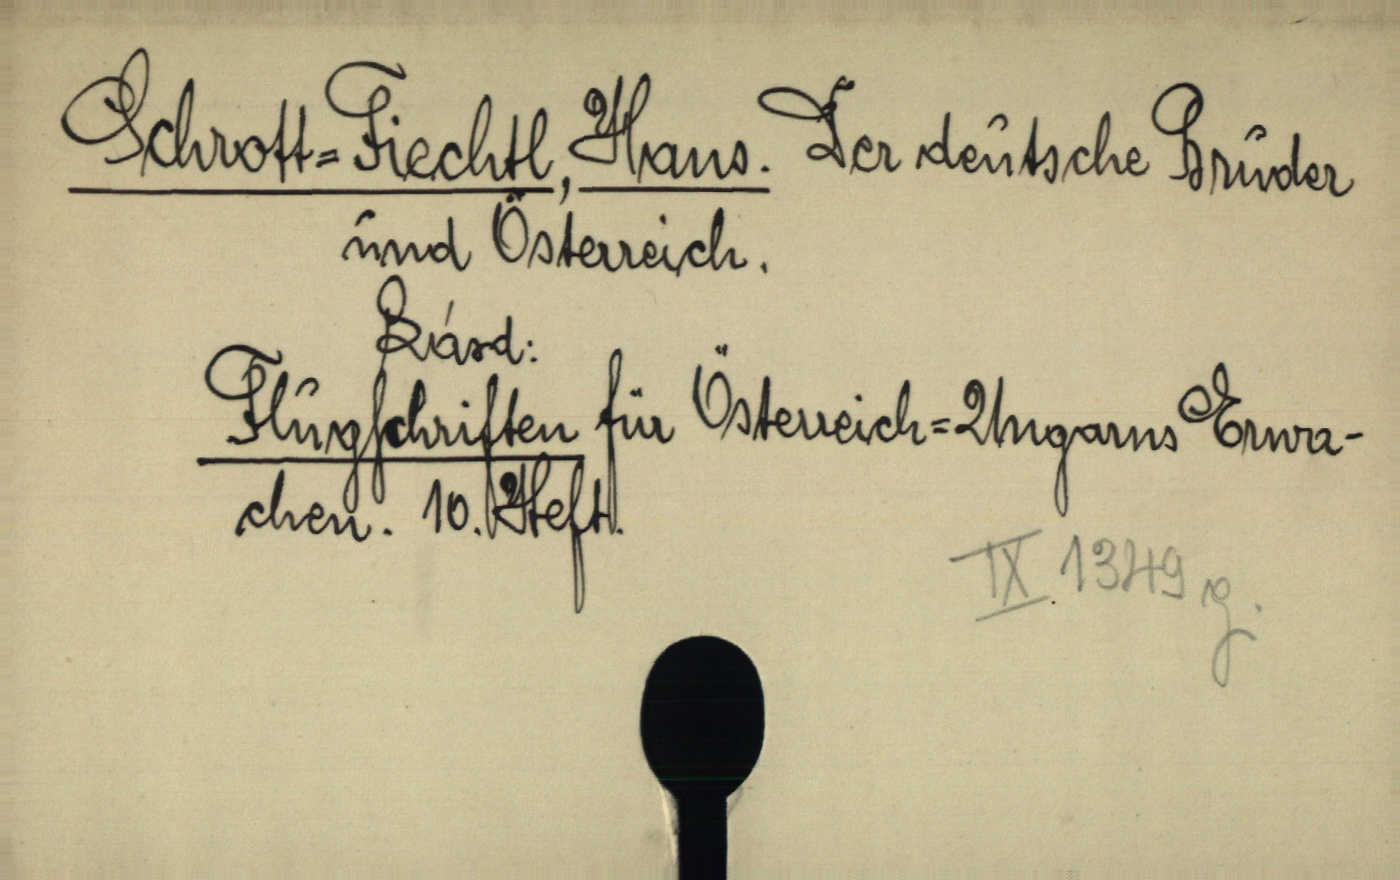 Schrott=Fiechtl, Hans. Der deutsche Bruder
und Österreich.
Lásd:
Flugschriften für Österreich=Ungarns Erwa-
chen. 10. Heft.
IX. 1349 g.